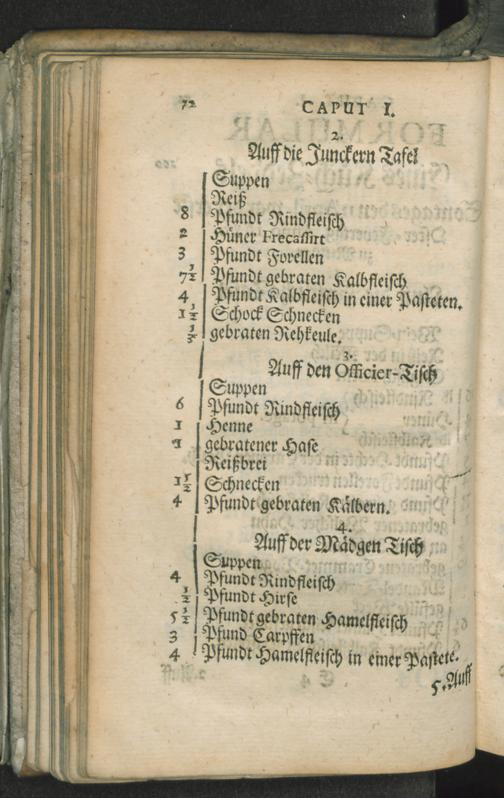 72 CAPUT I.
2.
Auff die Junckern Tafel
Suppen
Reiß
8 Pfundt Rindfleisch
2 Hüner Frecassirt
3 Pfundt Forellen
7½ Pfundt gebraten Kalbfleisch
4 Pfundt Kalbfleisch in einer Pasteten.
1½ Schock Schnecken
gebraten Rehkeule.
3.
Auff den Officier-Tisch
Suppen
6 Pfundt Rindfleisch
1 Henne
1 gebratener Hase
Reißbrei
1½ Schnecken
4 Pfundt gebraten Kälbern.
4.
Auff der Mädgen Tisch
Suppen
4 Pfundt Rindfleisch
½ Pfundt Hirse
5½ Pfundt gebraten Hamelfleisch
3 Pfund Carpffen
4 Pfundt Hamelfleisch in einer Pastete.
5. Auff